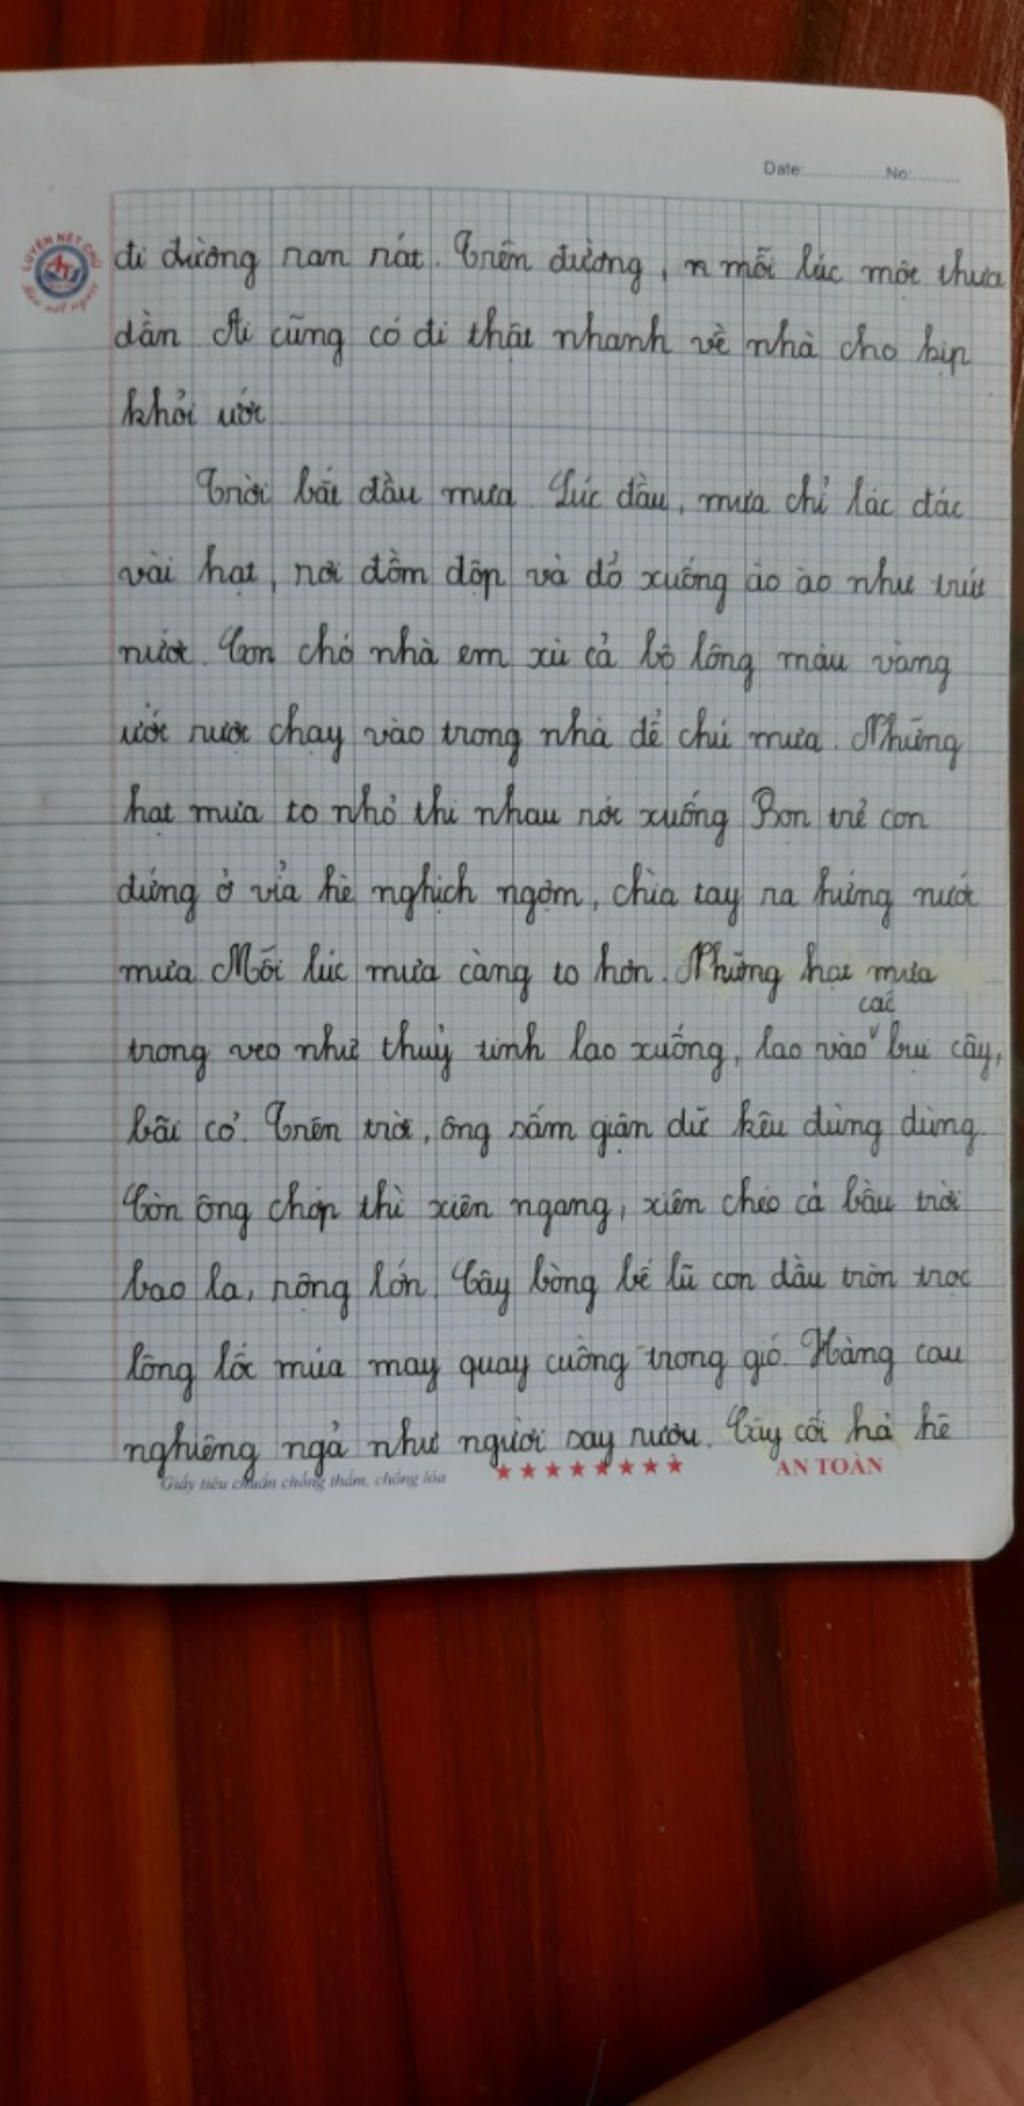 Date:.................No:..........
LUYỆN NÉT CHỮ
Rèn nết người
đi đường ran rát. Trên đường, n mỗi lúc một thưa
dần Ai cũng có đi thật nhanh về nhà cho kịp
khỏi ướt
Trời bắt đầu mưa. Lúc đầu, mưa chỉ lác đác
vài hạt, rơi đồm độp và đổ xuống ào ào như trút
nước. Con chó nhà em xù cả bộ lông màu vàng
ướt rượt chạy vào trong nhà để chú mưa. Những
hạt mưa to nhỏ thi nhau rớt xuống Bọn trẻ con
đứng ở vỉa hè nghịch ngợm, chìa tay ra hứng nước
mưa. Mỗi lúc mưa càng to hơn. Những hạt mưa
các
trong veo như thuỷ tinh lao xuống, lao vào bụi cây,
bãi cỏ. Trên trời, ông sấm giận dữ kêu đùng đùng.
Còn ông chớp thì xiên ngang, xiên chéo cả bầu trời
bao la, rộng lớn. Cây bòng bế lũ con đầu tròn trọc
lông lốc múa may quay cuồng trong gió. Hàng cau
nghiêng ngả như người say rượu. Cây cối hả hê
Giấy tiêu chuẩn chống thấm, chống lóa
AN TOÀN